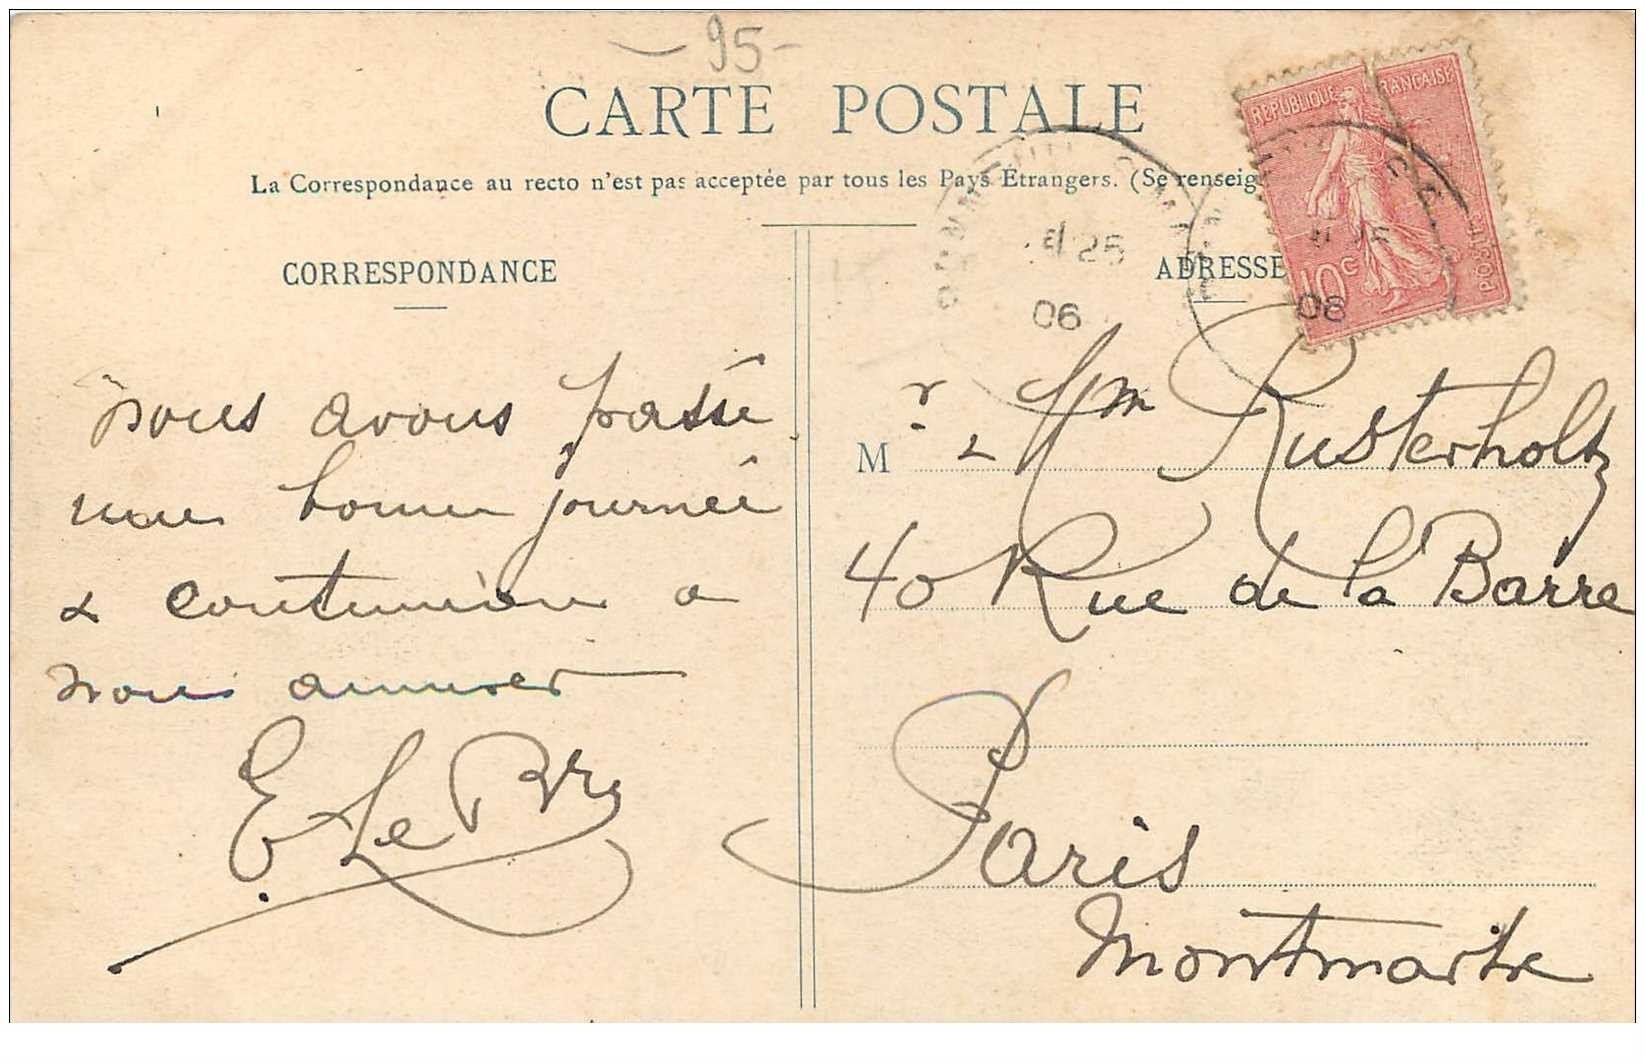 -95-
CARTE POSTALE
La Correspondance au recto n'est pas acceptée par tous les Pays Étrangers. (Se renseig
CORRESPONDANCE
nous avons passé
une bonne journée
& continuons a
nous amuser
E Le Bry
ADRESSE
M r & Mm Rusterholtz
40 Rue de la Barre
Paris
Montmartre
REPUBLIQUE FRANÇAISE
10c
POSTES
25
06
06